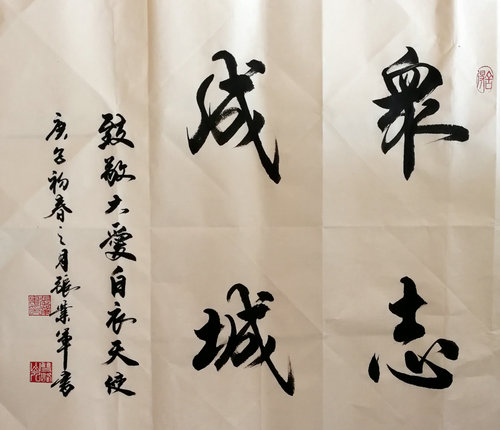 眾志
成城
致敬大愛白衣天使
庚子初春之月張業軍書